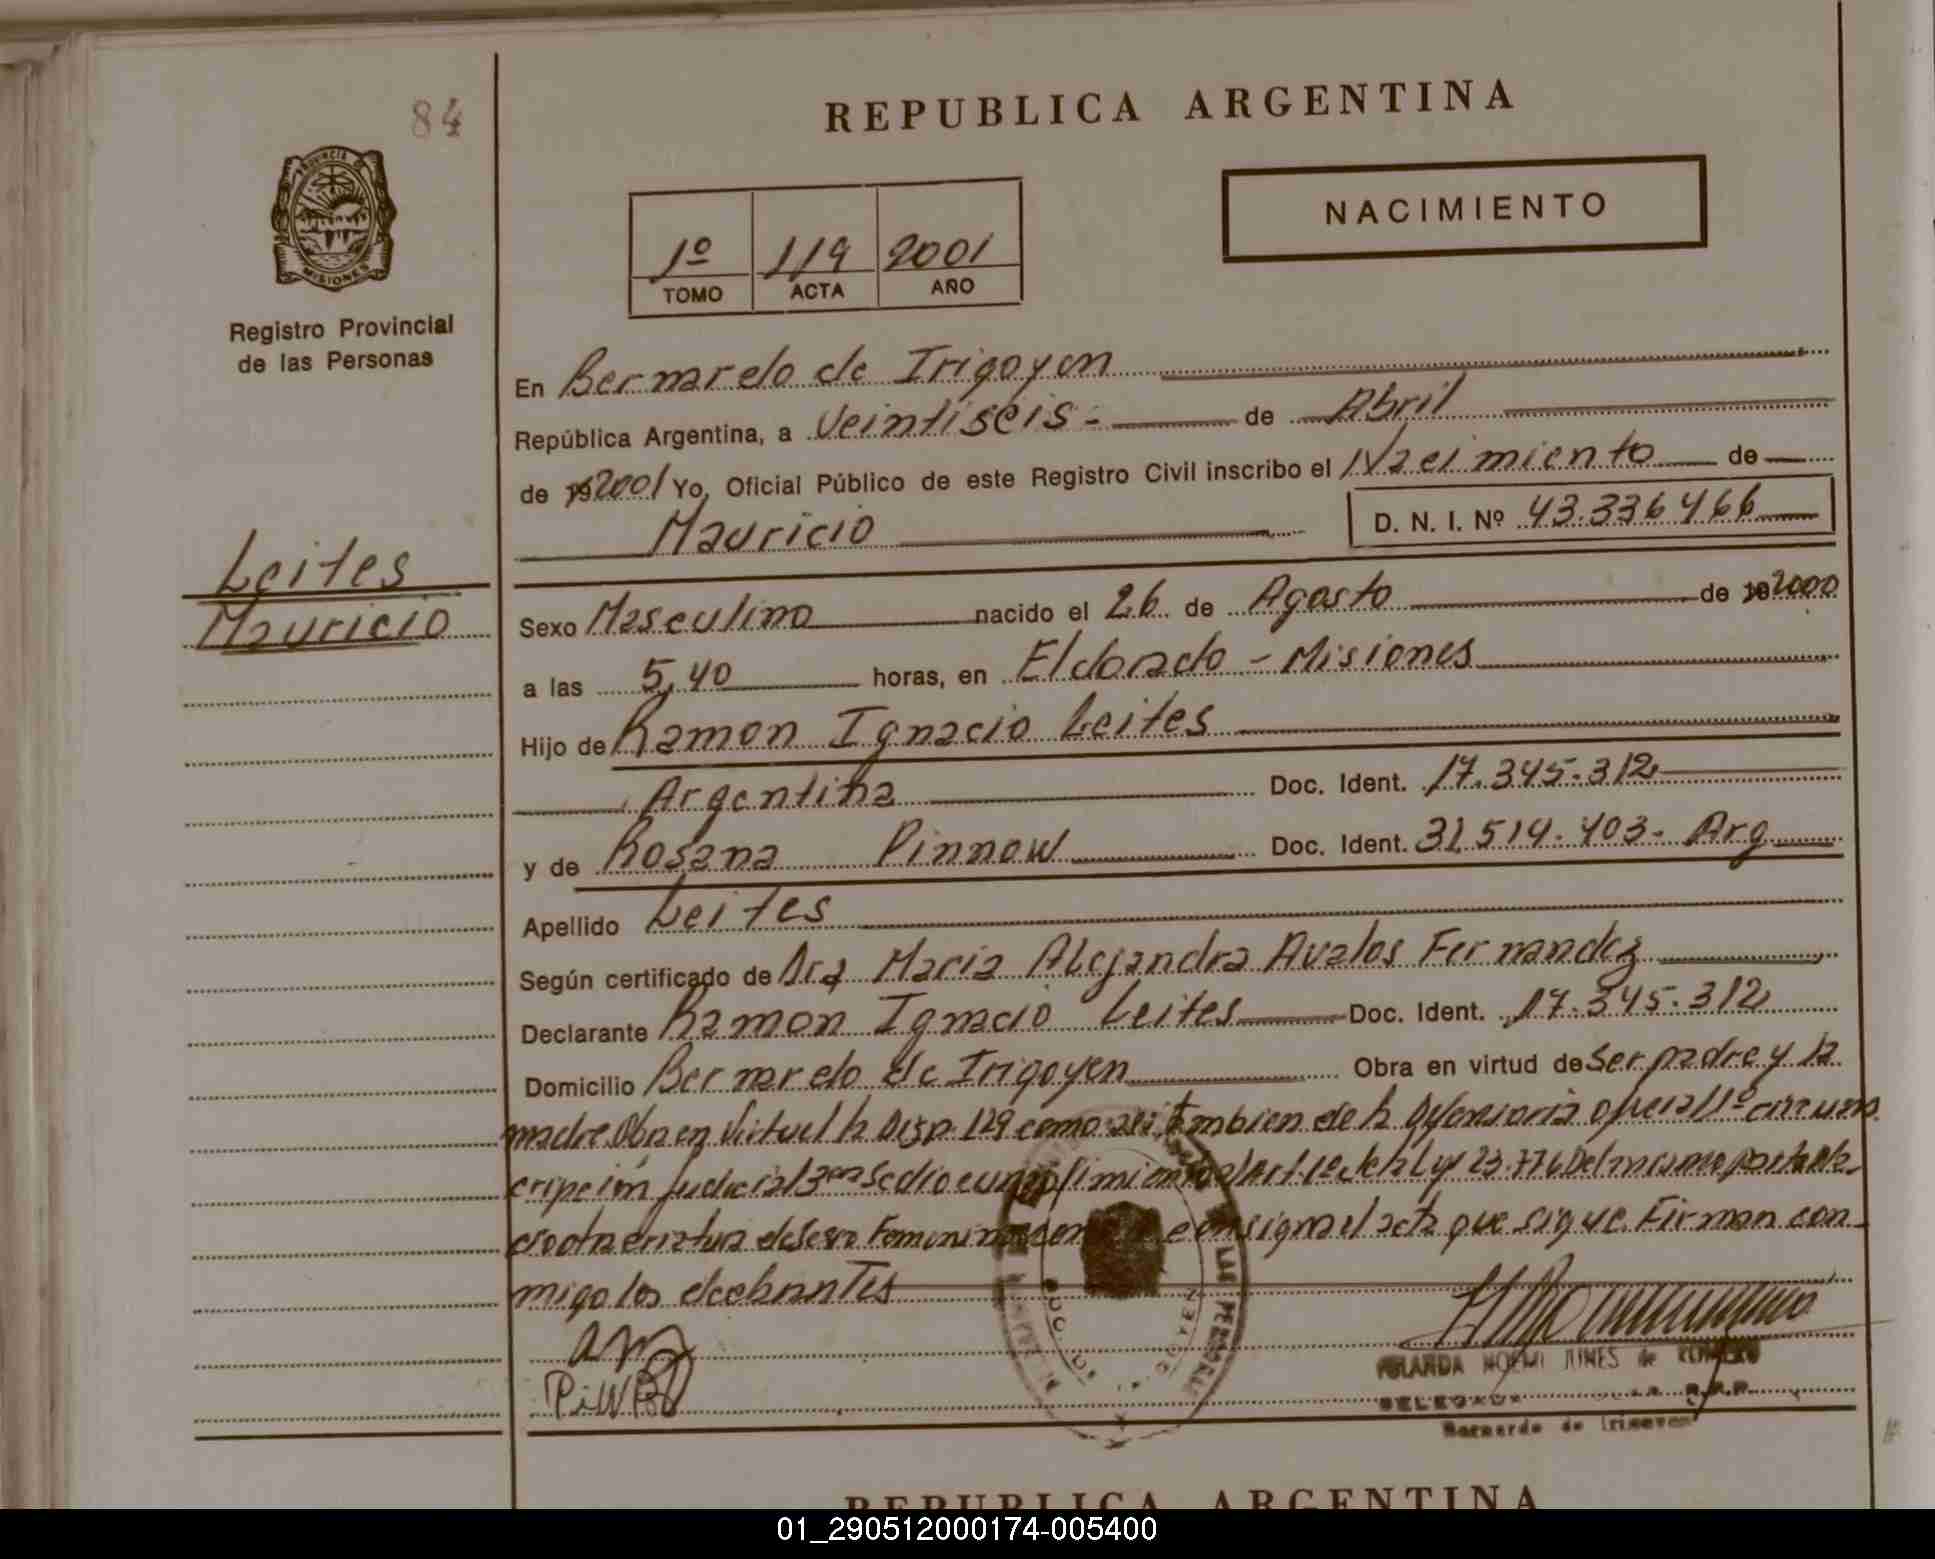 84
REPUBLICA ARGENTINA
PROVINCIA DE
MISIONES
Registro Provincial
de las Personas
NACIMIENTO
1º 119 2001
TOMO ACTA AÑO
En Bernardo de Irigoyen
República Argentina, a Veintiseis - de Abril
de 2001 Yo, Oficial Público de este Registro Civil inscribo el Nacimiento de
Mauricio D. N. I. Nº 43.336466
Leites
Mauricio
Sexo Masculino nacido el 26 de Agosto de 2000
a las 5,40 horas, en Eldorado - Misiones
Hijo de Ramon Ignacio Leites
Argentina Doc. Ident. 17.345.312
y de Rosana Pinnow Doc. Ident. 31.514.403- Arg
Apellido Leites
Según certificado de Dra Maria Alejandra Avalos Fernandez
Declarante Ramon Ignacio Leites Doc. Ident. 17.345.312
Domicilio Bernardo de Irigoyen Obra en virtud de Ser padre y la
madre Obra en Virtud la Disp. 129 como asi tambien de la Defensoria 1º circuns
cripción Judicial 3ra de la Ley 23.776 Del mismo parto
otra criatura de sexo Femenino consigna el acta que sigue. Firman con-
migo los declarantes
YOLANDA NOEMI JUNES de ROMERO
DELEGADA R.P.P.
Bernardo de Irigoyen
REPUBLICA ARGENTINA
01_290512000174-005400